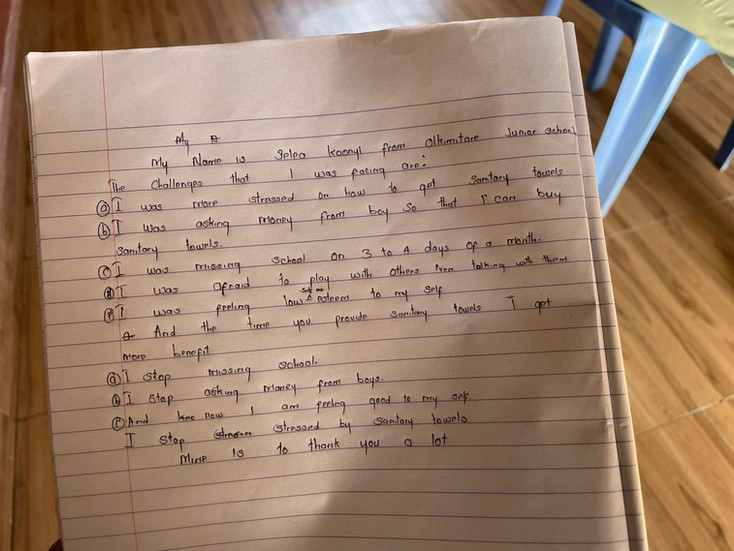 My Name is Selea Kaonyi from Olkimitare Junior School
The challenges that I was facing are:
(a) I was more stressed on how to get Sanitary towels
(b) I was asking money from boy so that I can buy
Sanitary towels.
(c) I was missing school on 3 to 4 days of a month.
(d) I was afraid to play with others even talking with them
(e) I was feeling low self esteem to my self
And the time you provide Sanitary towels I get
more benefit
(a) I stop missing school.
(b) I stop asking money from boys.
(c) And now I am feeling good to my self
I stop stressed by Sanitary towels
Mine is to thank you a lot